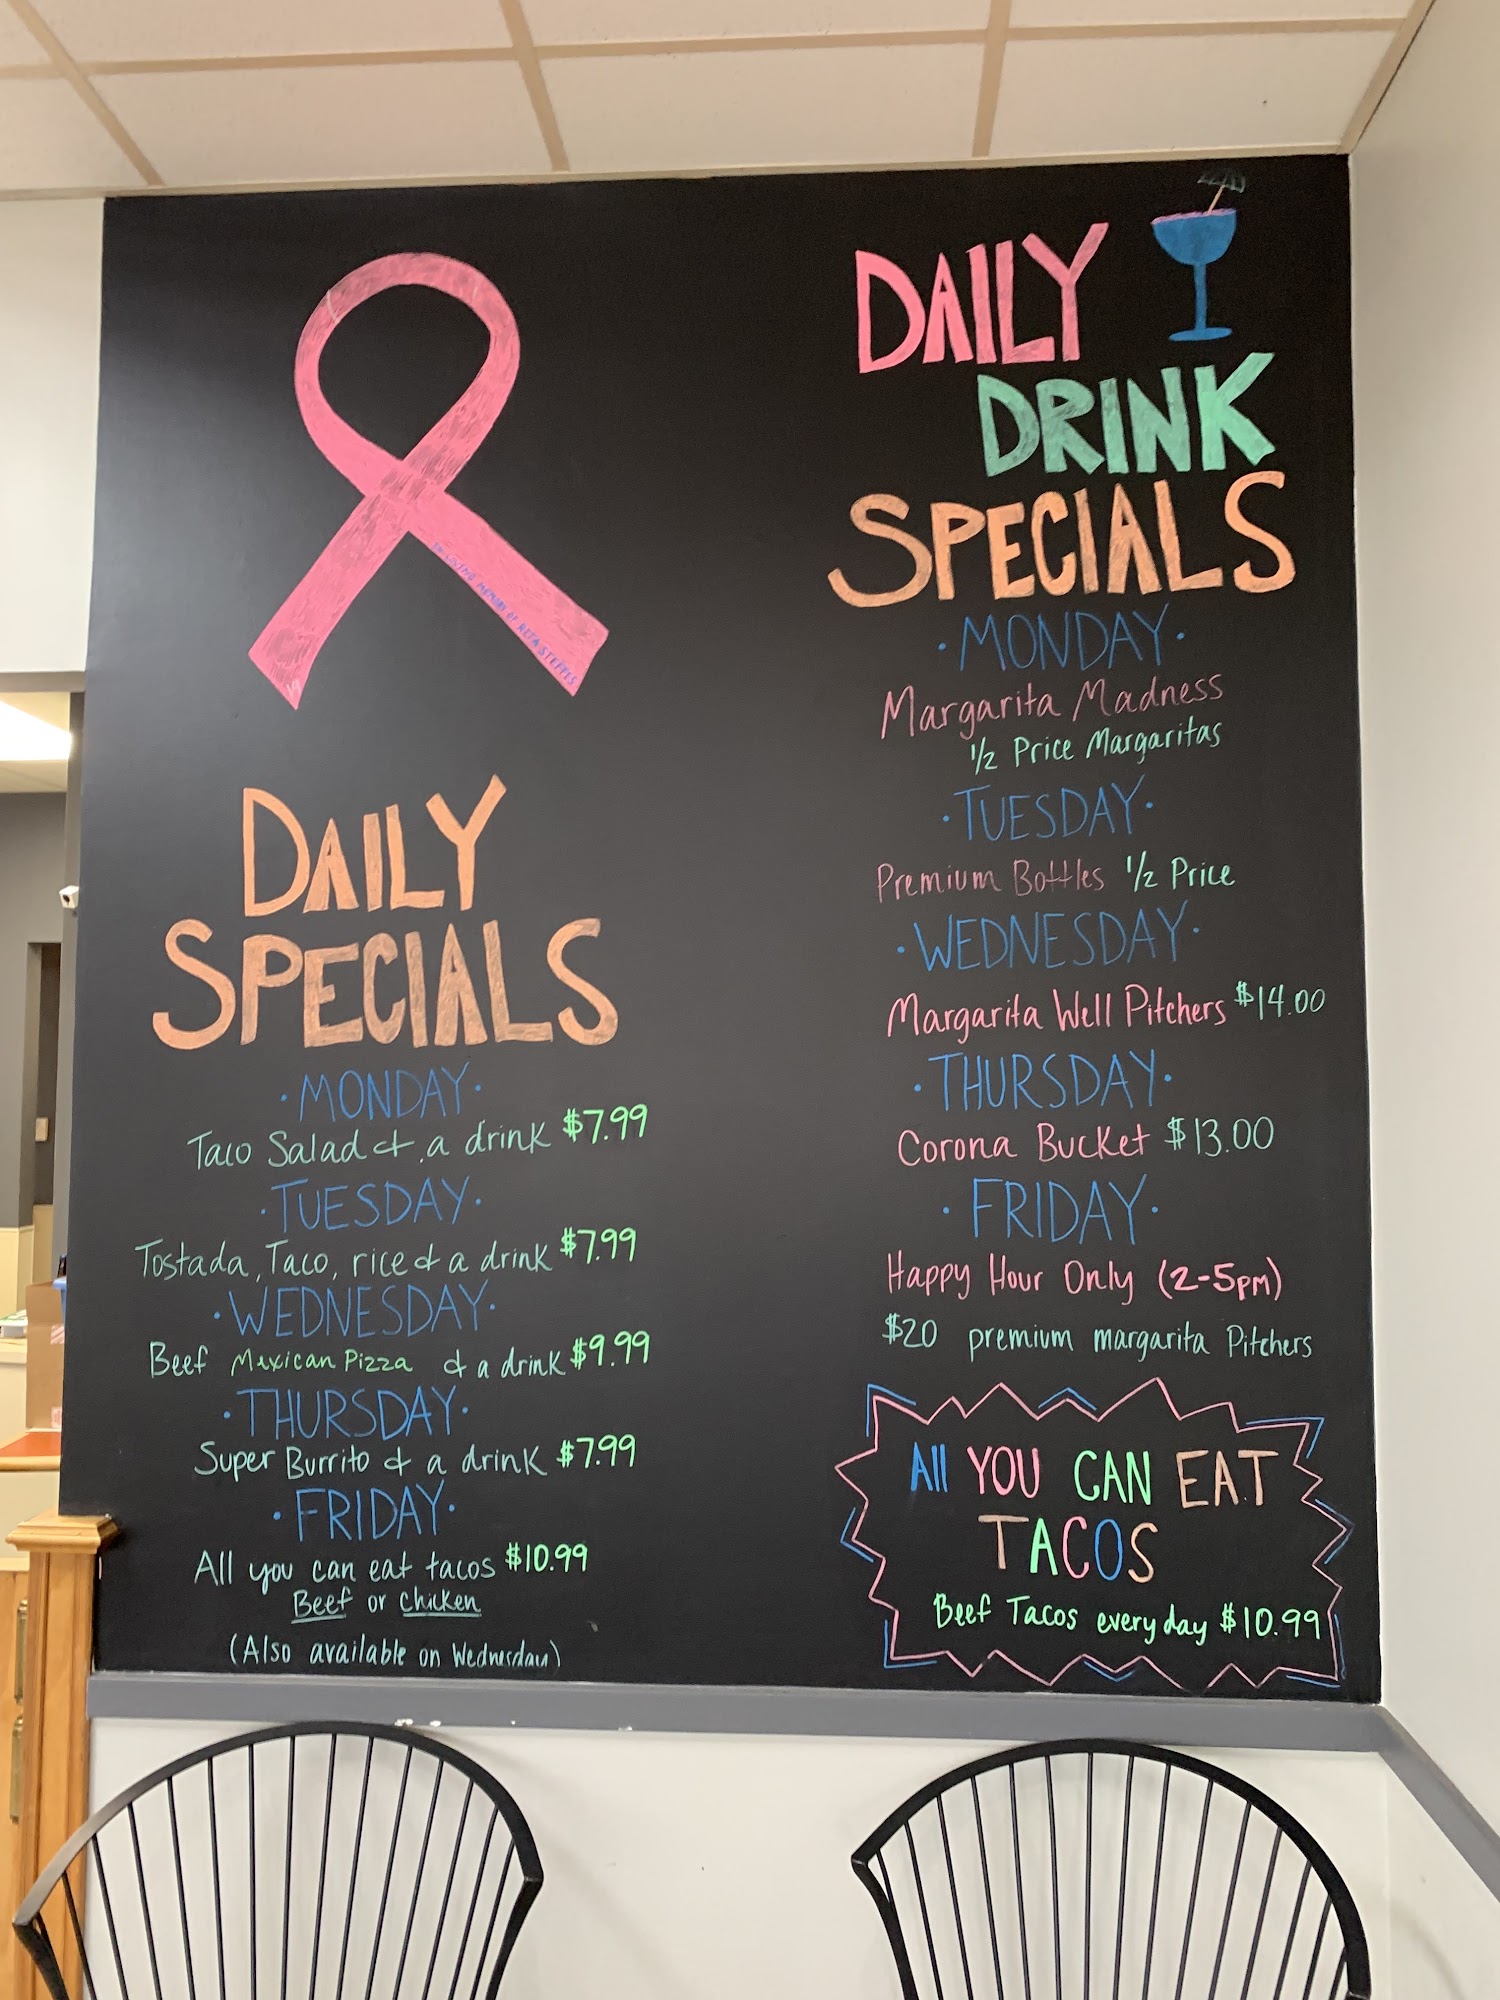 IN LOVING MEMORY OF RITA STEFFES
DAILY
SPECIALS
·MONDAY·
Taco Salad & a drink $7.99
·TUESDAY·
Tostada, Taco, rice & a drink $7.99
·WEDNESDAY·
Beef Mexican Pizza & a drink $9.99
·THURSDAY·
Super Burrito & a drink $7.99
·FRIDAY·
All you can eat tacos $10.99
Beef or Chicken
(Also available on Wednesday)
DAILY
DRINK
SPECIALS
·MONDAY·
Margarita Madness
1/2 Price Margaritas
·TUESDAY·
Premium Bottles 1/2 Price
·WEDNESDAY·
Margarita Well Pitchers $14.00
·THURSDAY·
Corona Bucket $13.00
·FRIDAY·
Happy Hour Only (2-5pm)
$20 premium margarita Pitchers
All YOU CAN EAT
TACOS
Beef Tacos everyday $10.99